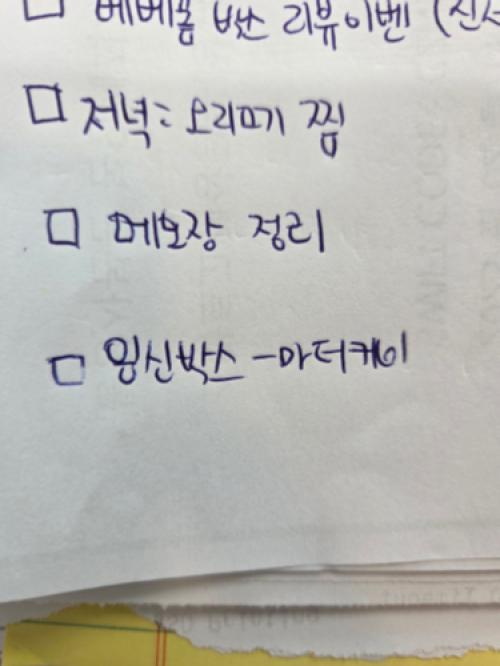 □ 베베폼 밧쓰 리뷰이벤 (신서
□ 저녁: 오리고기 찜
□ 메모장 정리
□ 임신박스 - 마더케이